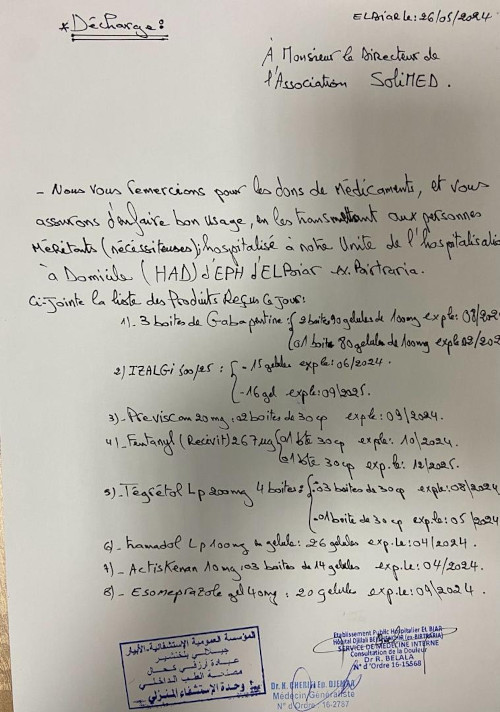 * Décharge:
EL Biar le: 26/05/2024
À Monsieur le Directeur de
l'Association SOLIMED.
- Nous vous remercions pour les dons de Médicaments, et vous
assurons d'en faire bon usage, en les transmettant aux personnes
Méritants (nécessiteuses); hospitalisé à notre Unite de l'hospitalisation
à Domicile (HAD) d'EPH d'EL Biar ex. Birtraria.
Ci-Jointe la liste des Produits Reçus Ce Jour:
1)- 3 boites de Gabapentine: 2 boites 90 gelules de 100mg exp le: 08/202
01 boite 80 gelules de 100mg exp le 02/202
2) IZALGI 500/25: - 15 gelules exp le: 06/2024.
- 16 gel exp le: 09/2025.
3)- Previscan 20mg: 02 boites de 30 cp exp le: 09/2024.
4)- Fentanyl (Recivit) 267 µg 01 bte 30 cp exp le: 10/2024.
01 bte 30 cp exp. le: 12/2025.
5)- Tégrétol Lp 200mg 4 boites: - 03 boites de 30 cp exp le: 08/2024
- 01 boite de 30 cp exp. le: 05/2024
6)- tramadol Lp 100mg en gelule: 26 gelules exp. le: 04/2024.
7)- Actiskenan 10mg: 03 boites de 14 gelules exp. le: 04/2024.
8)- Esomeprazole gel 40mg: 20 gelules exp. le: 09/2024.
المؤسسة العمومية الإستشفائية-الأبيار
جيلالي بلخنشير
عيادة أرزقي كحال
مصلحة الطب الداخلي
وحدة الإستشفاء المنزلي
Etablissement Public Hospitalier El BIAR
Hôpital Djillali BELKHENCHIR (ex-BIRTRARIA)
SERVICE DE MEDECINE INTERNE
Consultation de la Douleur
Dr R. BELALA
N° d'Ordre 16-15568
Dr. K. CHERIFI Ep.
Médecin Généraliste
N° d'Ordre: 16-2787